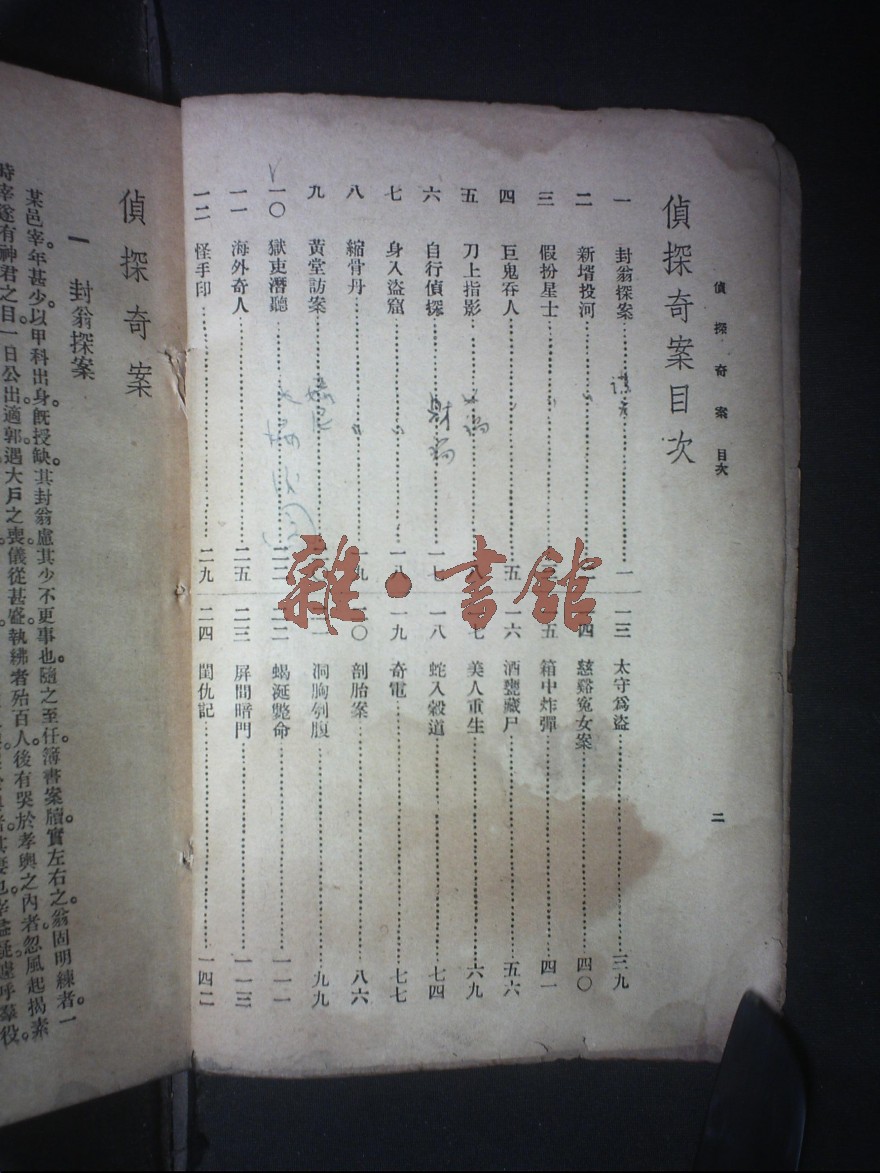 偵探奇案 目次
二
偵探奇案目次
一 封翁探案 一
二 新壻投河
三 假扮星士
四 巨鬼吞人 五
五 刀上指影 八
六 自行偵探 一七
七 身入盜窟 一八
八 縮骨丹 一九
九 黃堂訪案
一〇 獄吏潛聽 二二
一一 海外奇人 二五
一二 怪手印 二九
一三 太守爲盜 三九
一四 慈谿寃女案 四〇
一五 箱中炸彈 四一
一六 酒甕藏尸 五六
一七 美人重生 六九
一八 蛇入穀道 七四
一九 奇電 七七
二〇 剖胎案 八六
二一 洞胸刳腹 九九
二二 蝎涎斃命 一一一
二三 屏間暗門 一一三
二四 閨仇記 一四二
雜·書館
偵探奇案
一 封翁探案
某邑宰。年甚少。以甲科出身。旣授缺。其封翁慮其少不更事也。隨之至任。簿書案牘。實左右之。翁固明練者。一
時宰遂有神君之目。一日公出。適郭。遇大戶之喪。儀從甚盛。執紼者殆百人。後有哭於孝輿之內者。忽風起揭素